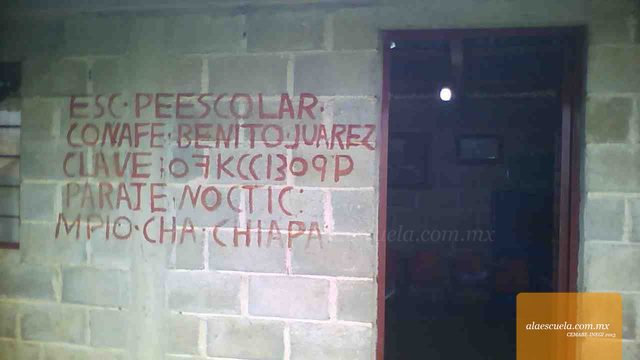 ESC. PEESCOLAR.
CONAFE. BENITO. JUAREZ
CLAVE: 07KCC1309D
PARAJE. NOCTIC:
MPIO. CHA. CHIAPA
escuela.com.mx
alaescuela.com.mx
CEMABE-INEGI 2013